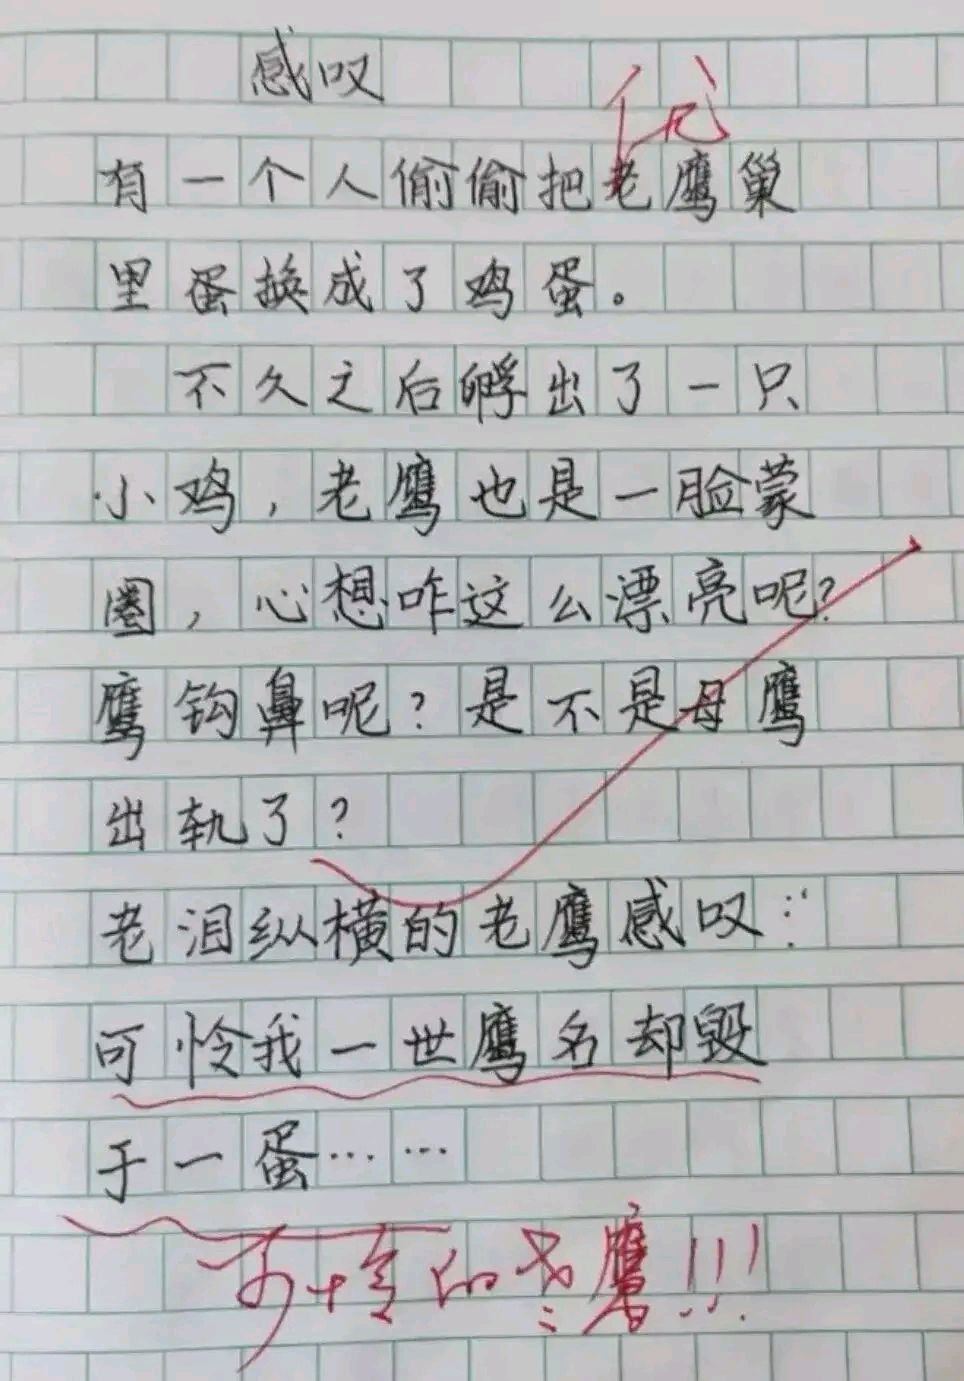 感叹
优
有一个人偷偷把老鹰巢
里蛋换成了鸡蛋。
不久之后孵出了一只
小鸡，老鹰也是一脸蒙
圈，心想咋这么漂亮呢？
鹰钩鼻呢？是不是母鹰
出轨了？
老泪纵横的老鹰感叹：
可怜我一世鹰名却毁
于一蛋……
可怜的老鹰!!!